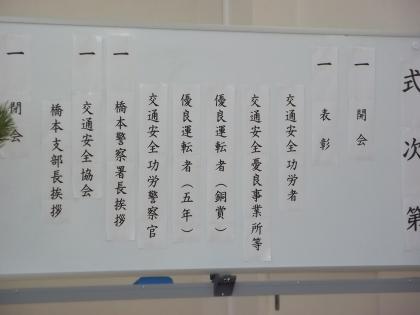 式次第
一 開会
一 表彰
交通安全功労者
交通安全優良事業所等
優良運転者（銅賞）
優良運転者（五年）
交通安全功労警察官
一 橋本警察署長挨拶
一 交通安全協会
橋本支部長挨拶
一 閉会